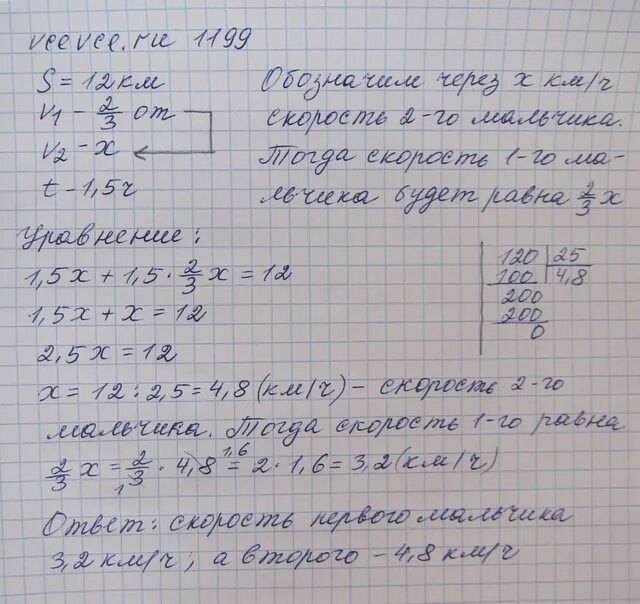 vcevce.ru 1199
S = 12 км
v1 – 2/3 от
v2 – x
t – 1,5 ч
Обозначим через x км/ч
скорость 2-го мальчика.
Тогда скорость 1-го ма-
льчика будет равна 2/3 x
Уравнение:
1,5x + 1,5 · 2/3 x = 12
1,5x + x = 12
2,5x = 12
120 | 25
100 | 4,8
200
200
0
x = 12 : 2,5 = 4,8 (км/ч) – скорость 2-го
мальчика. Тогда скорость 1-го равна
2/3 x = 2/3 · 4,8 = 2 · 1,6 = 3,2 (км/ч)
1 1,6
Ответ: скорость первого мальчика
3,2 км/ч, а второго – 4,8 км/ч